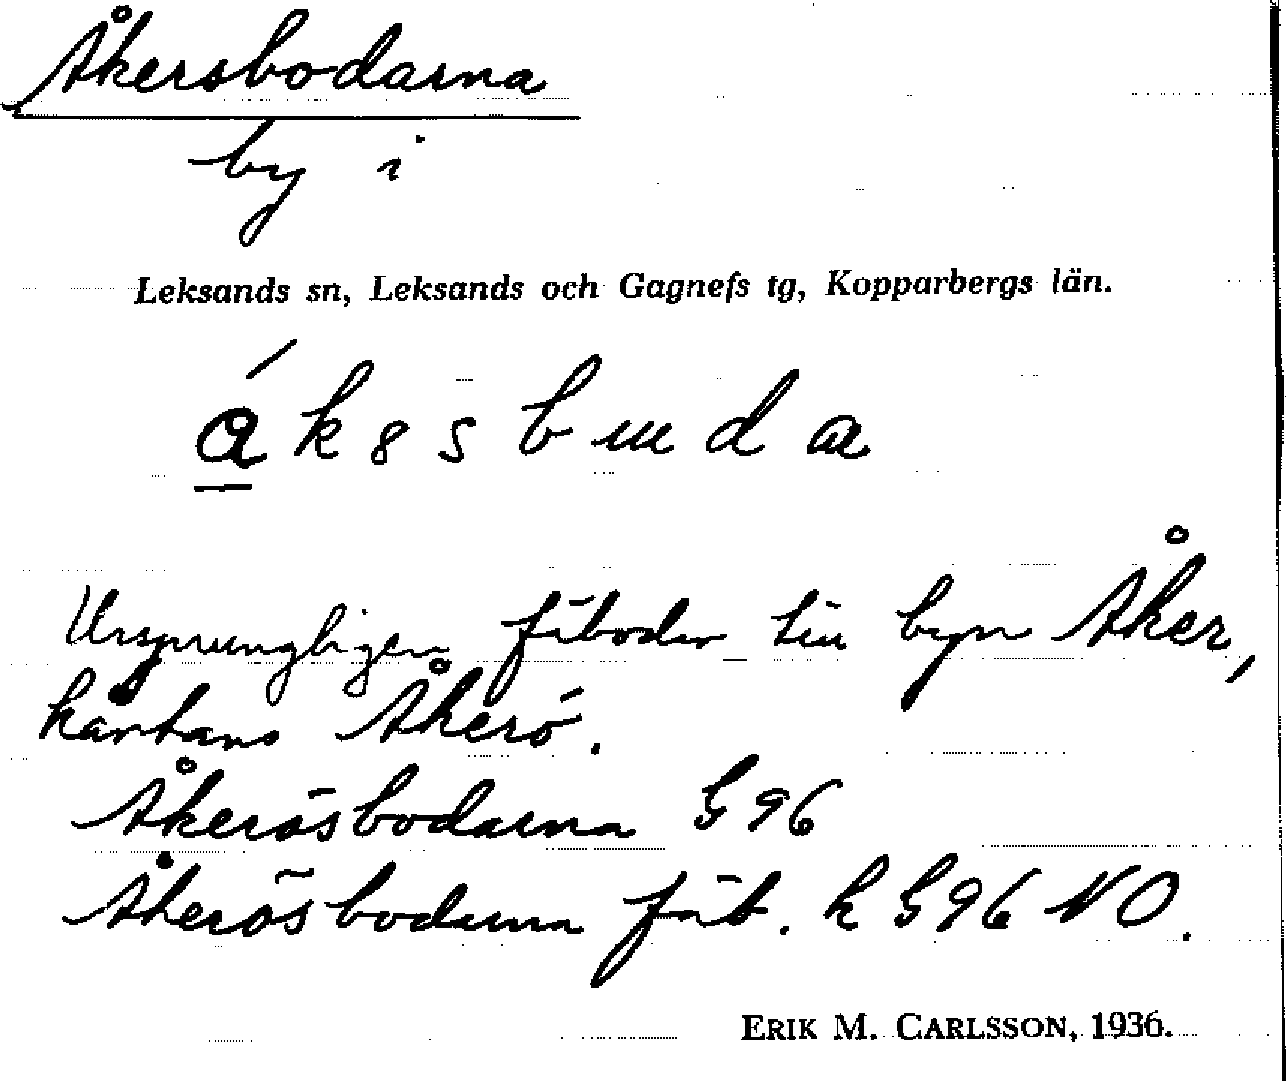 Åkersbodarna
by i
Leksands sn, Leksands och Gagnefs tg, Kopparbergs län.
Ursprungligen fäbodar till byn Åker,
kartans Åkerö.
Åkerösbodarna G 96
Åkerösbodarna fäb. k G 96 NO.
ERIK M. CARLSSON, 1936.